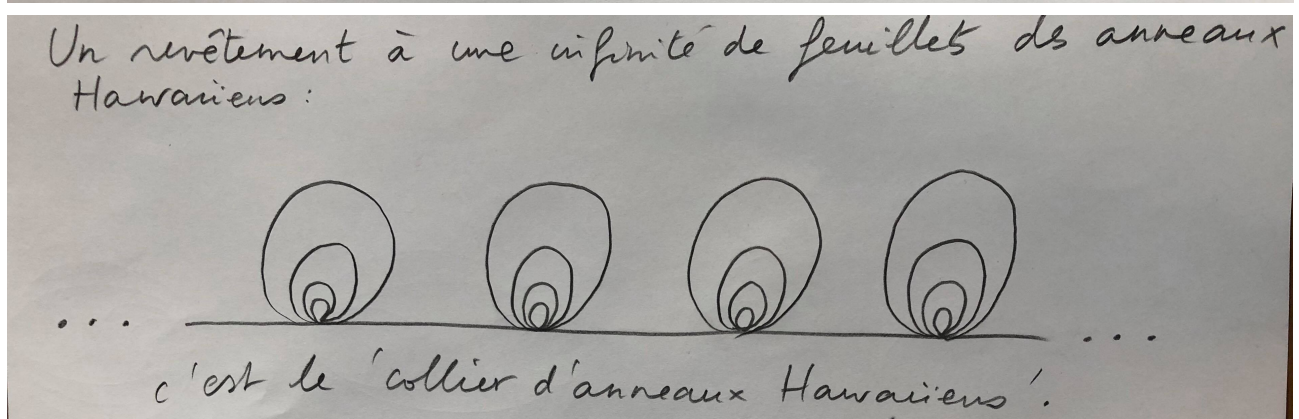 Un revêtement à une infinité de feuillets ds anneaux
Hawaiiens :
...
...
c'est le 'collier d'anneaux Hawaiiens'.